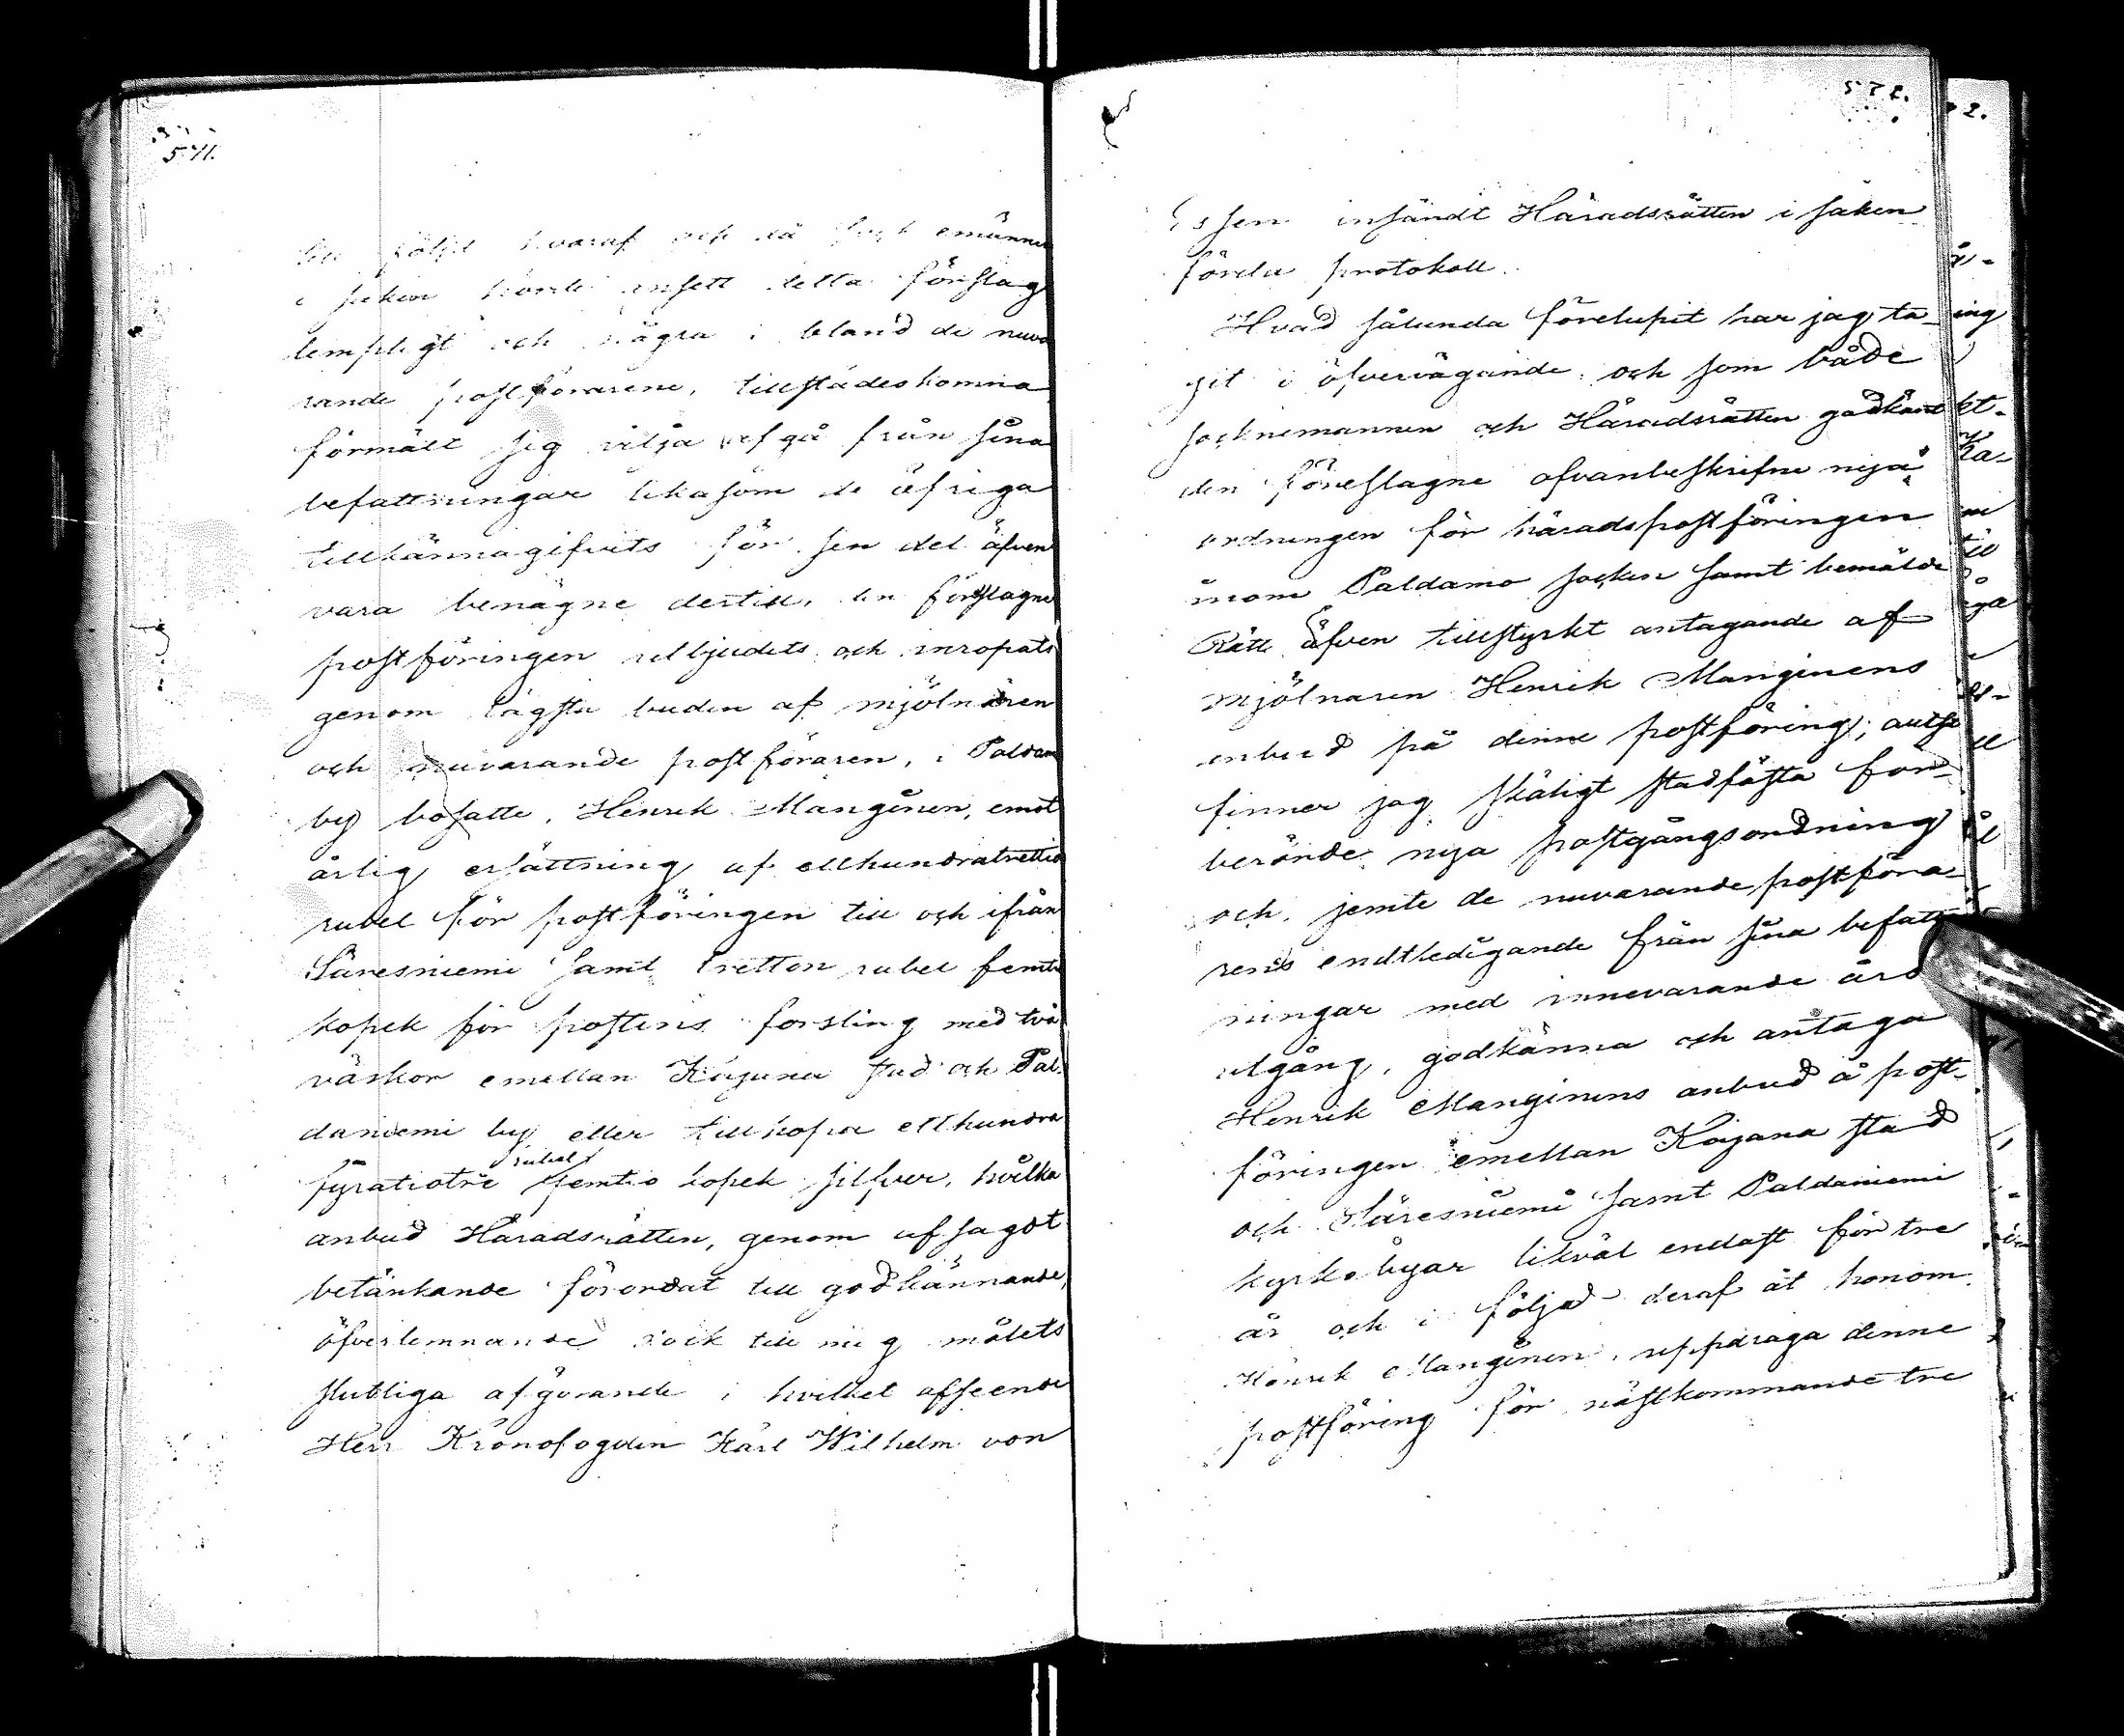 571.
till följd hvaraf och då sockenmännen
i saken hörde ansett detta förslag
lempligt och några i bland de nuva
rande postförarene, tillstädeskomna
förmält sig vilja afgå från sina
befattningar likasom de öfriga
tillkännagifvits för sin del äfven
vara benägne dertill, den föreslagne
postföringen utbjudits och inropats
genom lägsta buden af mjölnaren
och nuvarande postföraren, i Paldamo
by bosatte, Henrik Manginen, emot
årlig ersättning af etthundratrettio
rubel för postföringen till och ifrån
Säresniemi samt tretton rubel femtio
kopek för postens forsling med två
väskor emellan Kajana stad och Pal-
daniemi by eller tillhopa etthundra
fyratiotre rubel femtio kopek silfver, hvilka
anbud Häradsrätten, genom afsagdt
betänkande förordat till godkännande,
öfverlemnande dock till mig målets
slutliga afgörande i hvilket afseende
Herr Kronofogden Karl Wilhelm von
572.
Essen insändt Häradsrätten i saken
förda protokoll.
Hvad sålunda förelupit har jag ta-
git i öfvervägande; och som både
socknemännen och Häradsrätten godkänt
den föreslagne ofvanbeskrifne nya
ordningen för häradspostföringen
inom Paldamo socken samt bemälde
Rätt äfven tillstyrkt antagande af
mjölnaren Henrik Manginens
anbud på denne postföring; altså
finner jag skäligt stadfästa for-
berörde nya postgångsordning
och, jemte de nuvarande postföra-
rens endtledigande från sina befatt-
ningar med innevarande års
utgång, godkänna och antaga
Henrik Manginens anbud å post-
föringen emellan Kajana stad
och Säresniemi samt Paldaniemi
kyrkobyar likväl endast för tre
år och i följd deraf åt honom
Henrik Manginen, uppdraga denne
postföring för nästkommande tre